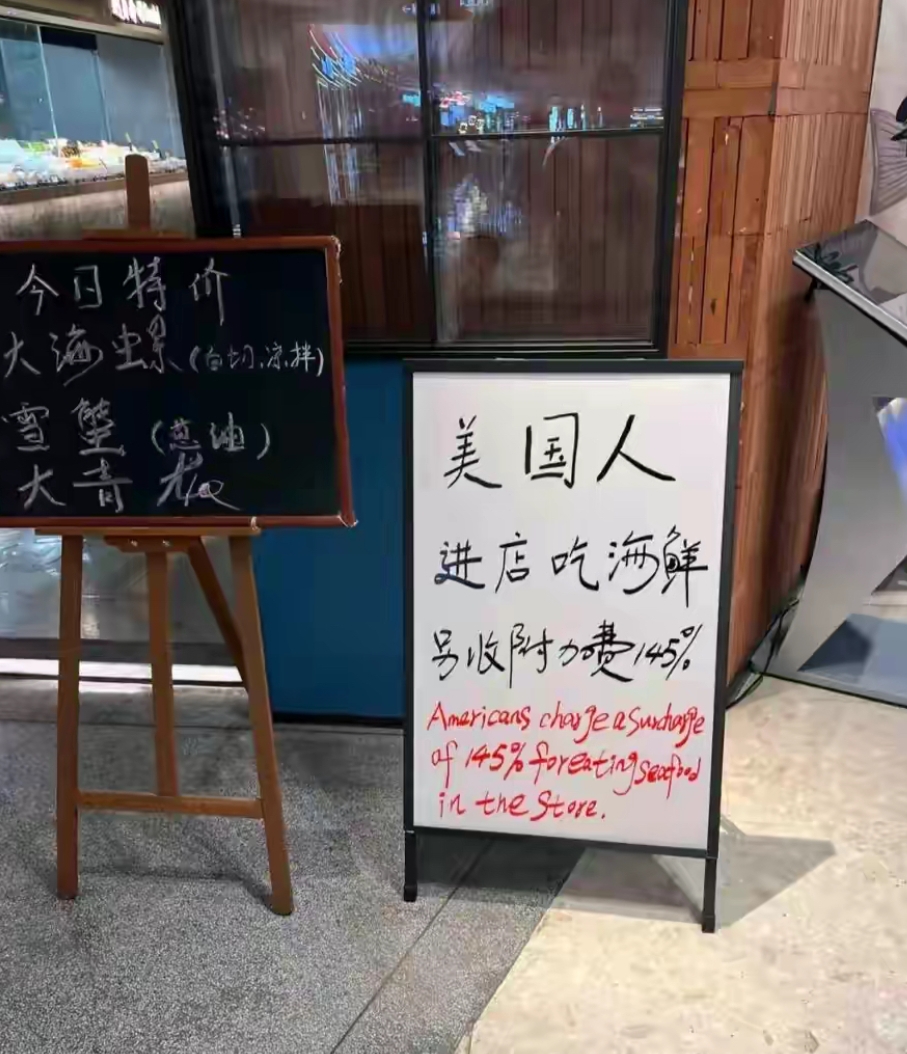 今日特价
大海螺(白切、凉拌)
雪蟹(葱油)
大青龙
美国人
进店吃海鲜
另收附加费145%
Americans charge a surcharge
of 145% for eating seafood
in the Store.